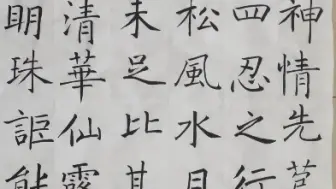 神情先苞
四忍之行
松風水月
未足比其
清華仙露
明珠詎能